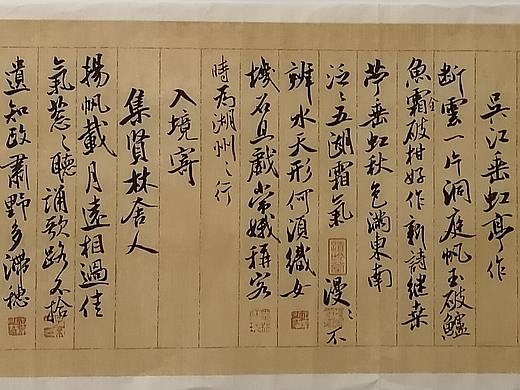 吳江垂虹亭作
斷雲一片洞庭帆玉破鱸
魚霜金破柑好作新詩継桑
苧垂虹秋色滿東南
泛〻五湖霜氣漫〻不
辨水天形何須織女
機石且戲常娥稱客
時為湖州之行
入境寄
集賢林舍人
揚帆載月遠相過佳
氣葱〻聽誦歌路不拾
遺知政肅野多滯穗